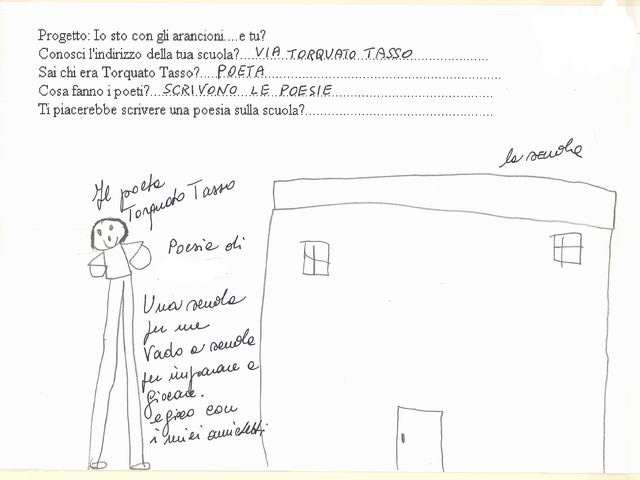 Progetto: Io sto con gli arancioni....e tu?
Conosci l'indirizzo della tua scuola?...VIA TORQUATO TASSO
Sai chi era Torquato Tasso?...POETA
Cosa fanno i poeti?...SCRIVONO LE POESIE
Ti piacerebbe scrivere una poesia sulla scuola?
la scuola
Il poeta
Torquato Tasso
Poesia di
Una scuola
per me
Vado a scuola
per imparare a
giocare.
e gioco con
i miei amichetti